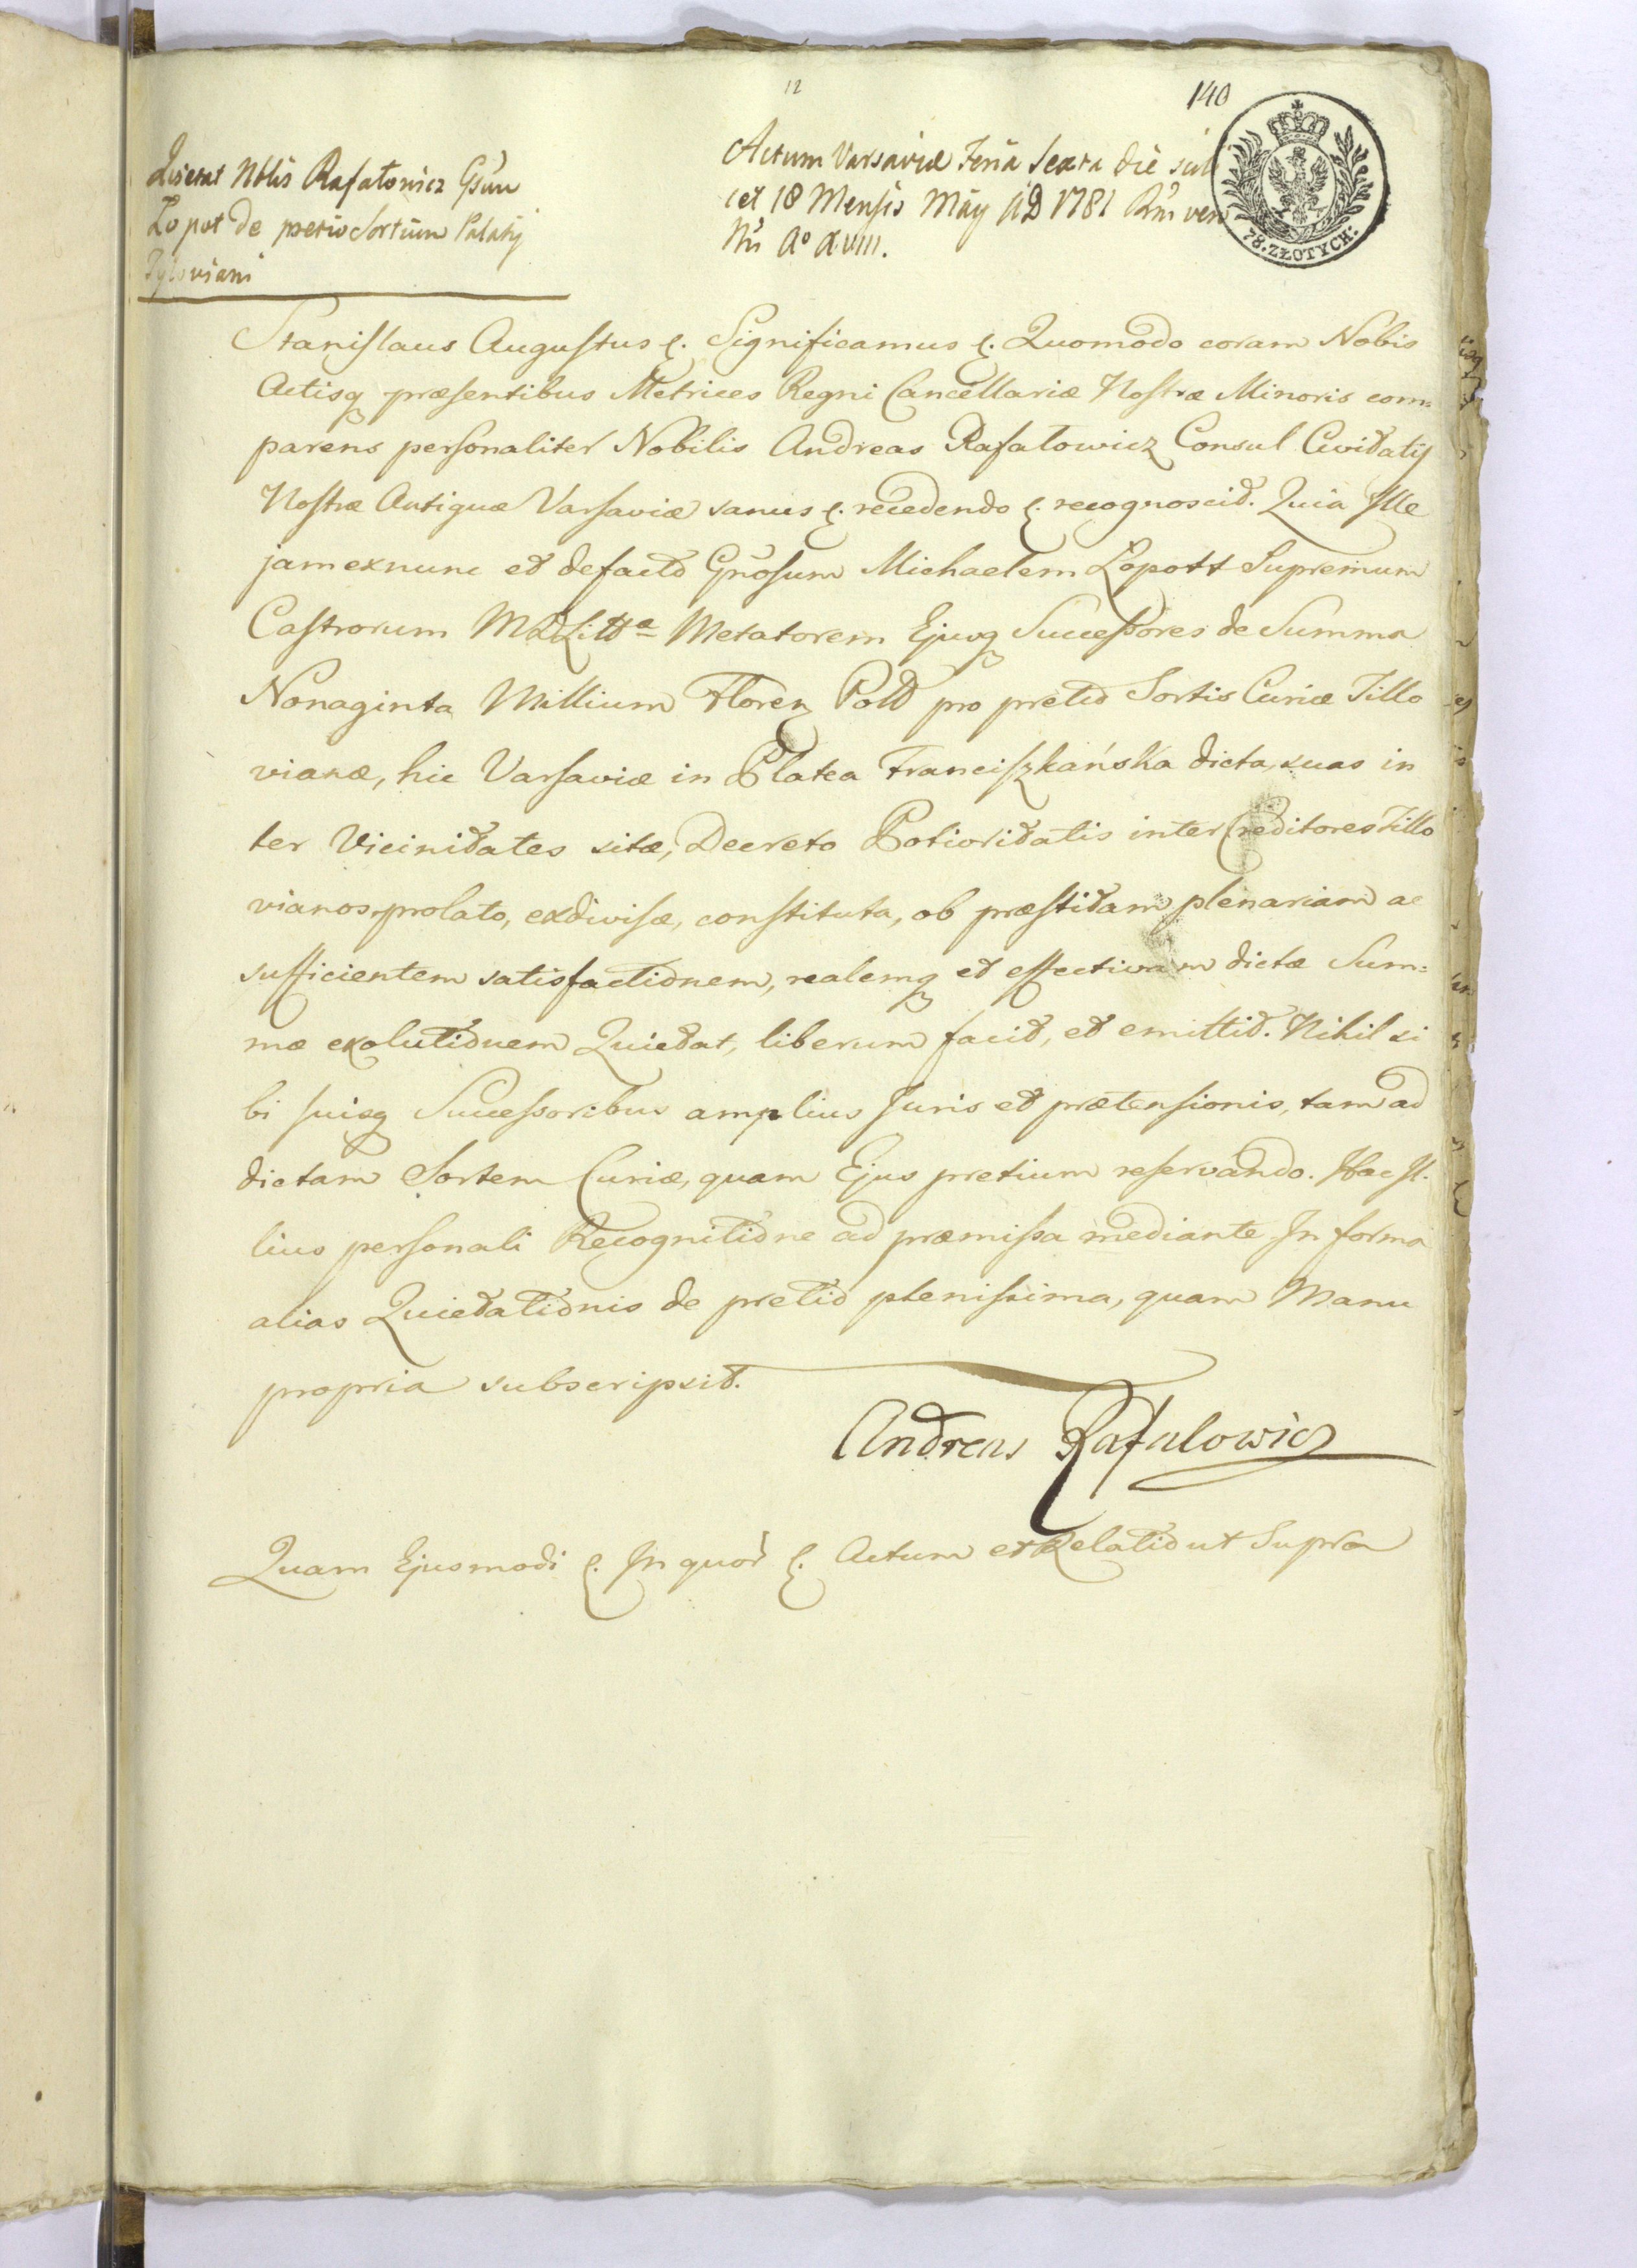 12
140
78. ZŁOTYCH.
Nblis Rafałowicz Gsum
Łopot De Sortium Palatij
Actum Varsaviæ Feria Sexta Die scili
cet 18 Mensis Maij AD 1781 Rni vero
Nri Ao XVIII.
Stanislaus Augustus &. Significamus &. Quomodo coram Nobis
Actisq præsentibus Metrices Regni Cancellariæ Nostræ Minoris com=
parens personaliter Nobilis Andreas Rafałowicz Consul Civitatis
Nostræ Antiquæ Varsaviæ sanus &. recedendo &. recognoscit. Quia Ille
jam ex nunc et de facto Gnosum Michaelem Łopott Supremum
Castrorum MDLittæ Metatorem Ejusq Successores de Summa
Nonaginta Millium Floren Poll pro pretio Sortis Curiæ Tillo
vianæ, hic Varsaviæ in Platea Franciszkańska dicta, suas in
ter Vicinitates sitæ, Decreto Potioritatis inter Creditores Tillo
vianos prolato, exdivisæ, constituta, ob præstitam plenariam ac
sufficientem satisfactionem, realemq et effectivam dictæ Sum=
mæ exolutionem Quietat, liberum facit, et emittit. Nihil si
bi suisq Successoribus amplius Juris et prætensionis, tam ad
dictam Sortem Curiæ, quam Ejus pretium reservando. Hac Il=
lius personali Recognitione ad præmissa mediante In forma
alias Quietationis de pretio plenissima, quam Manu
propria subscripsit.
Andreas Rafalowicz
Quam Ejusmodi &. In quor &. Actum et Relatio ut Supra